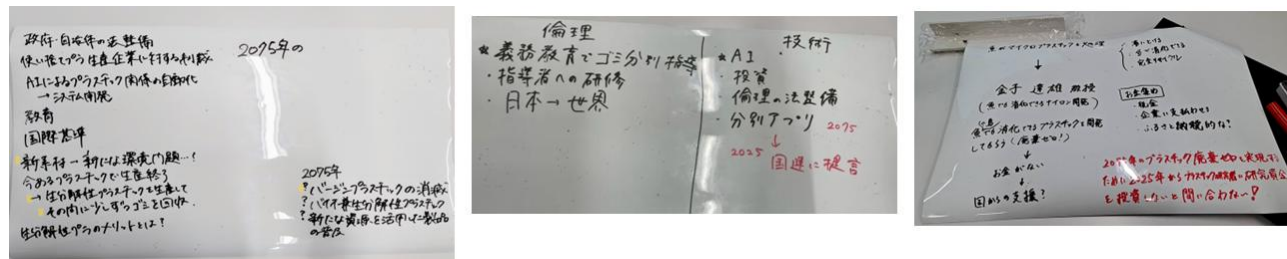 政府・自治体の法整備
使い捨てプラ生産企業に対する
AIによるプラスチック関係の自動化
→システム開発
教育
国際基準
新素材→新たな環境問題…?
今あるプラスチックで生産終了
→生分解性プラスチックを生産して
その内に少しずつゴミを回収
生分解性プラのメリットとは?
2075年の
2075年
?バージンプラスチックの消滅
?バイオ兼生分解性プラスチック
?新たな資源を活用した製品
の普及
倫理
★義務教育でゴミ分別指導
・指導者への研修
・日本→世界
技術
★AI
・投資
・倫理の法整備
・分別アプリ
2075
↓
2025 国連に提言
魚がマイクロプラスチックを
完全リサイクル
金子 達雄 教授
(魚でも消化できるナイロン開発)
魚でも消化できるプラスチックを開発
してもらう(廃棄ゼロ!)
↓
お金がない
↓
国からの支援?
お金集め
・税金
・企業に支払わせる
・ふるさと納税的な?
2075年のプラスチック廃棄ゼロを実現
ために2025年から
投資しないと間に合わない!